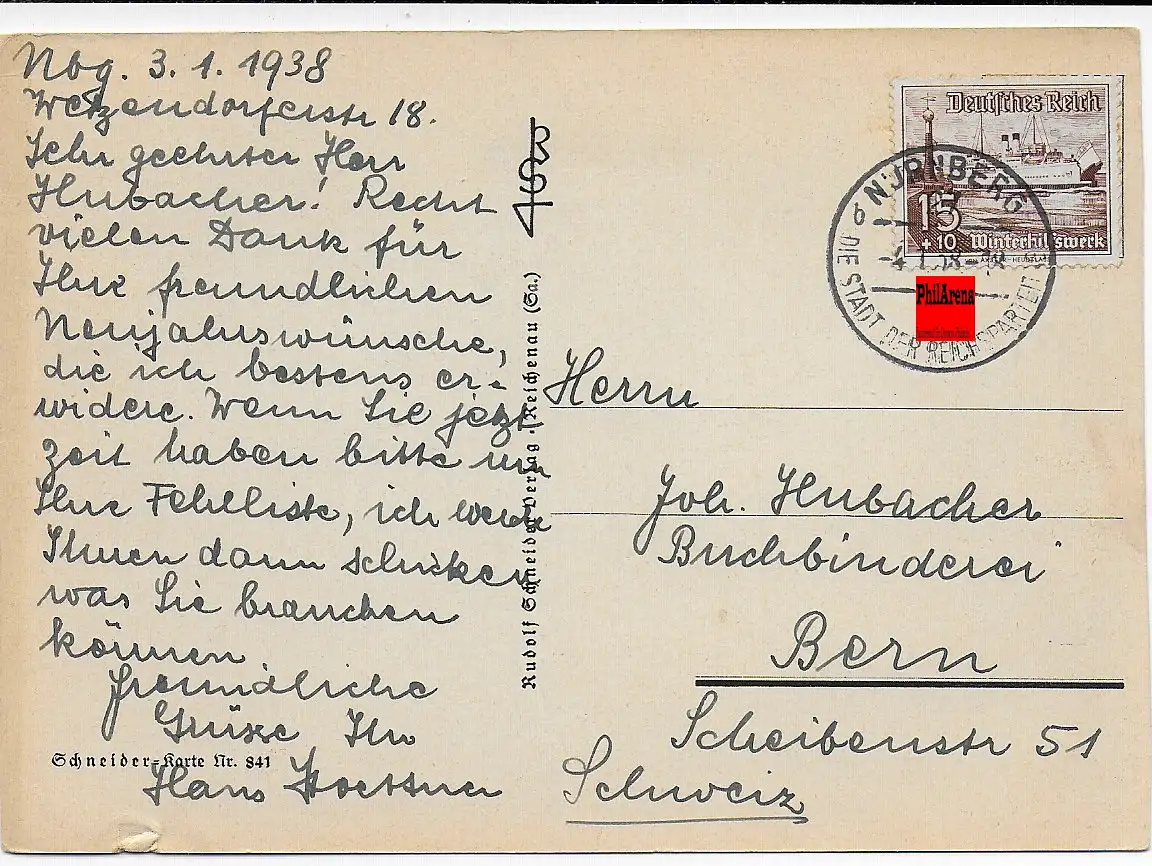 Nbg. 3. 1. 1938
Wetzendorferstr 18.
Sehr geehrter Herr
Hubacher! Recht
vielen Dank für
Ihre freundlichen
Neujahrswünsche,
die ich bestens er-
widere. Wenn Sie jetzt
Zeit haben bitte um
Ihre Fehlliste, ich werde
Ihnen dann schicken
was Sie brauchen
können
freundliche
Grüsse Ihr
Hans
Schneider-Karte Nr. 841
Rudolf Schneider Verlag, Reichenau (Sa.)
Deutsches Reich
15
+10 Winterhilfswerk
NÜRNBERG
DIE STADT DER REICHSPARTEITAGE
PhilArena
Herrn
Joh. Hubacher
Buchbinderei
Bern
Scheibenstr 51
Schweiz